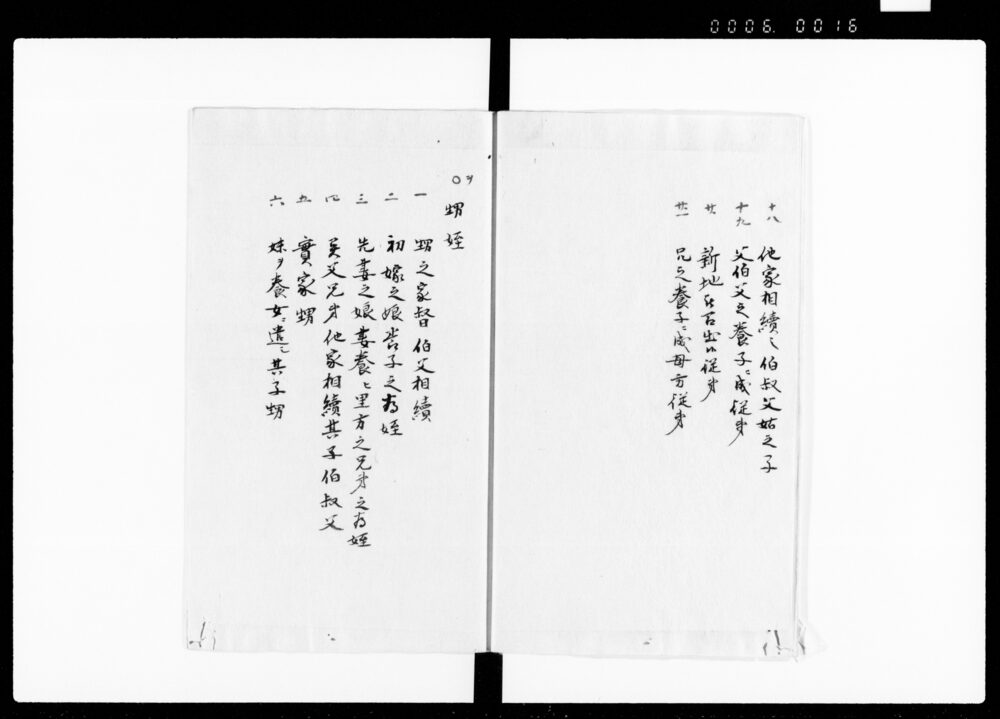 0006. 0016
十八 他家相續之伯叔父姑之子
十九 父伯父之養子ニ成従弟
廿 新地被召出候従弟
廿一 兄之養子ニ成母方従弟
〇ヲ
甥姪
一 甥之家督伯父相續
二 初嫁之娘呑子之為姪
三 先妻之娘妻養ニ里方之兄弟之為姪
四 養父兄弟他家相續其子伯叔父
五 實家甥
六 妹ヲ養女ニ遣シ其子甥